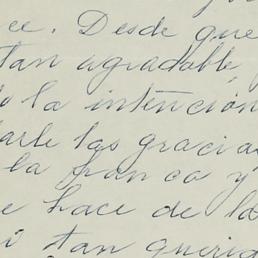 ee. Desde que
tan agradable,
o la intención
darle las gracia
la franca y
e hace de la
i tan querid